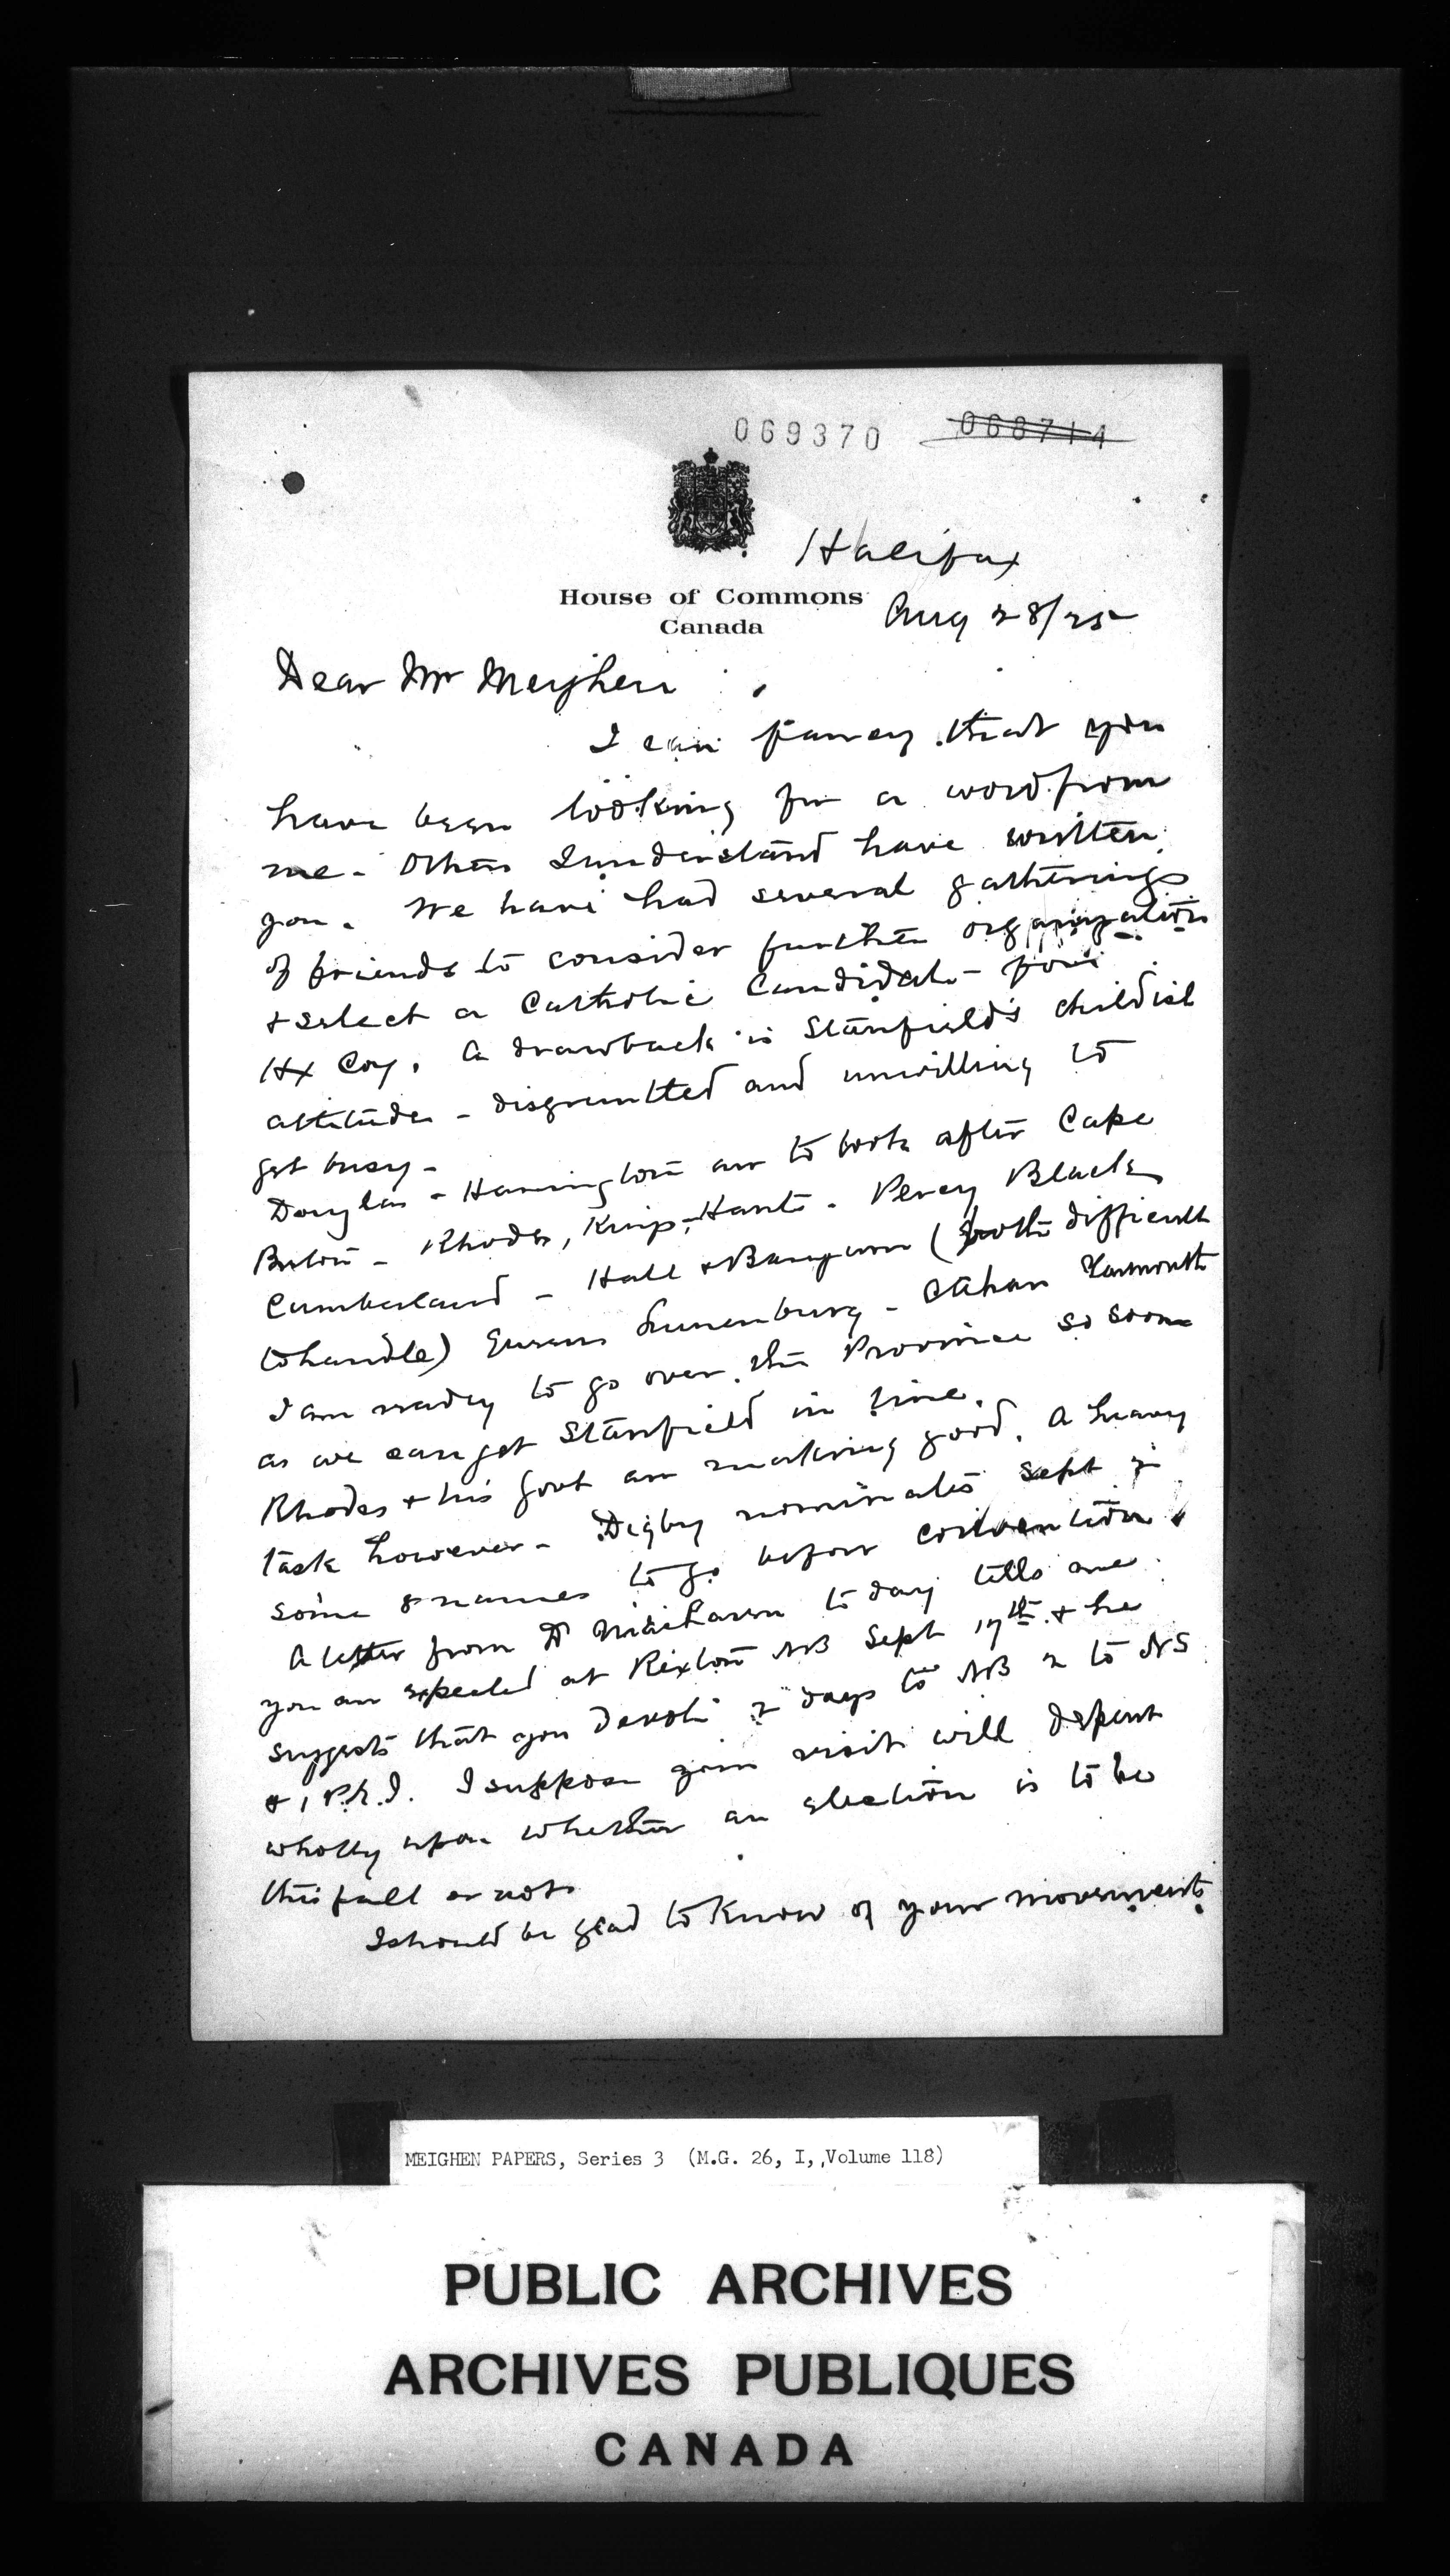 069370 068714
Halifax
House of Commons
Canada
Aug 28/25
Dear Mr Meighen
I can fancy that you
have been looking for a word from
me - Others I understand have written
you. We have had several gatherings
of friends to consider further organization
& select a Catholic Candidate for
Hx Coy. A drawback is Stanfield's childish
attitude - disgruntled and unwilling to
get busy -
Douglas - Harrington are to look after Cape
Breton - Rhodes, Kings, Hants - Percy Black
Cumberland - Hall & (both difficult
to handle) Queens Lunenburg - Cahan Yarmouth
I am ready to go over the Province so soon
as we can get Stanfield in line.
Rhodes & his Govt are making good. A heavy
task however - Digby nominates Sept 2
some 8 names to go before convention
A letter from Dr today tells me
you are expected at Rexton NB Sept 17th & he
suggests that you devote 2 days to NB 2 to NS
& 1 P.E.I. I suppose your visit will depend
wholly upon whether an election is to be
this fall or not.
I should be glad to know of your movements
MEIGHEN PAPERS, Series 3 (M.G. 26, I, ,Volume 118)
PUBLIC ARCHIVES
ARCHIVES PUBLIQUES
CANADA